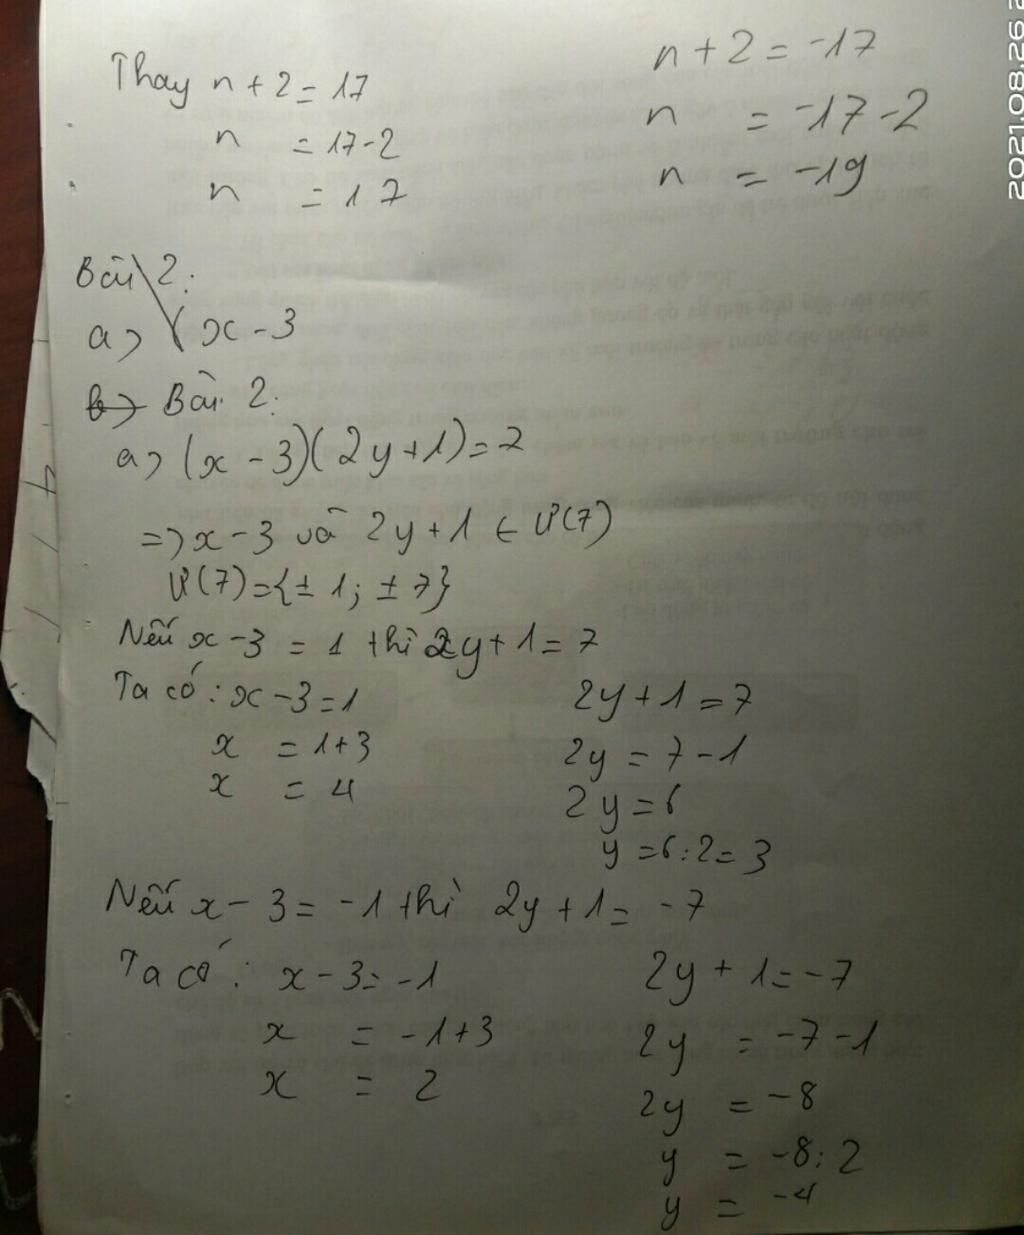 Thay n + 2 = 17
n = 17 - 2
n = 17
n + 2 = -17
n = -17 - 2
n = -19
Bài 2:
a> (x - 3
b> Bài 2:
a> (x - 3)(2y + 1) = 7
=> x - 3 và 2y + 1 ∈ Ư(7)
Ư(7) = {± 1; ± 7}
Nếu x - 3 = 1 thì 2y + 1 = 7
Ta có: x - 3 = 1
x = 1 + 3
x = 4
2y + 1 = 7
2y = 7 - 1
2y = 6
y = 6 : 2 = 3
Nếu x - 3 = -1 thì 2y + 1 = -7
Ta có: x - 3 = -1
x = -1 + 3
x = 2
2y + 1 = -7
2y = -7 - 1
2y = -8
y = -8 : 2
y = -4